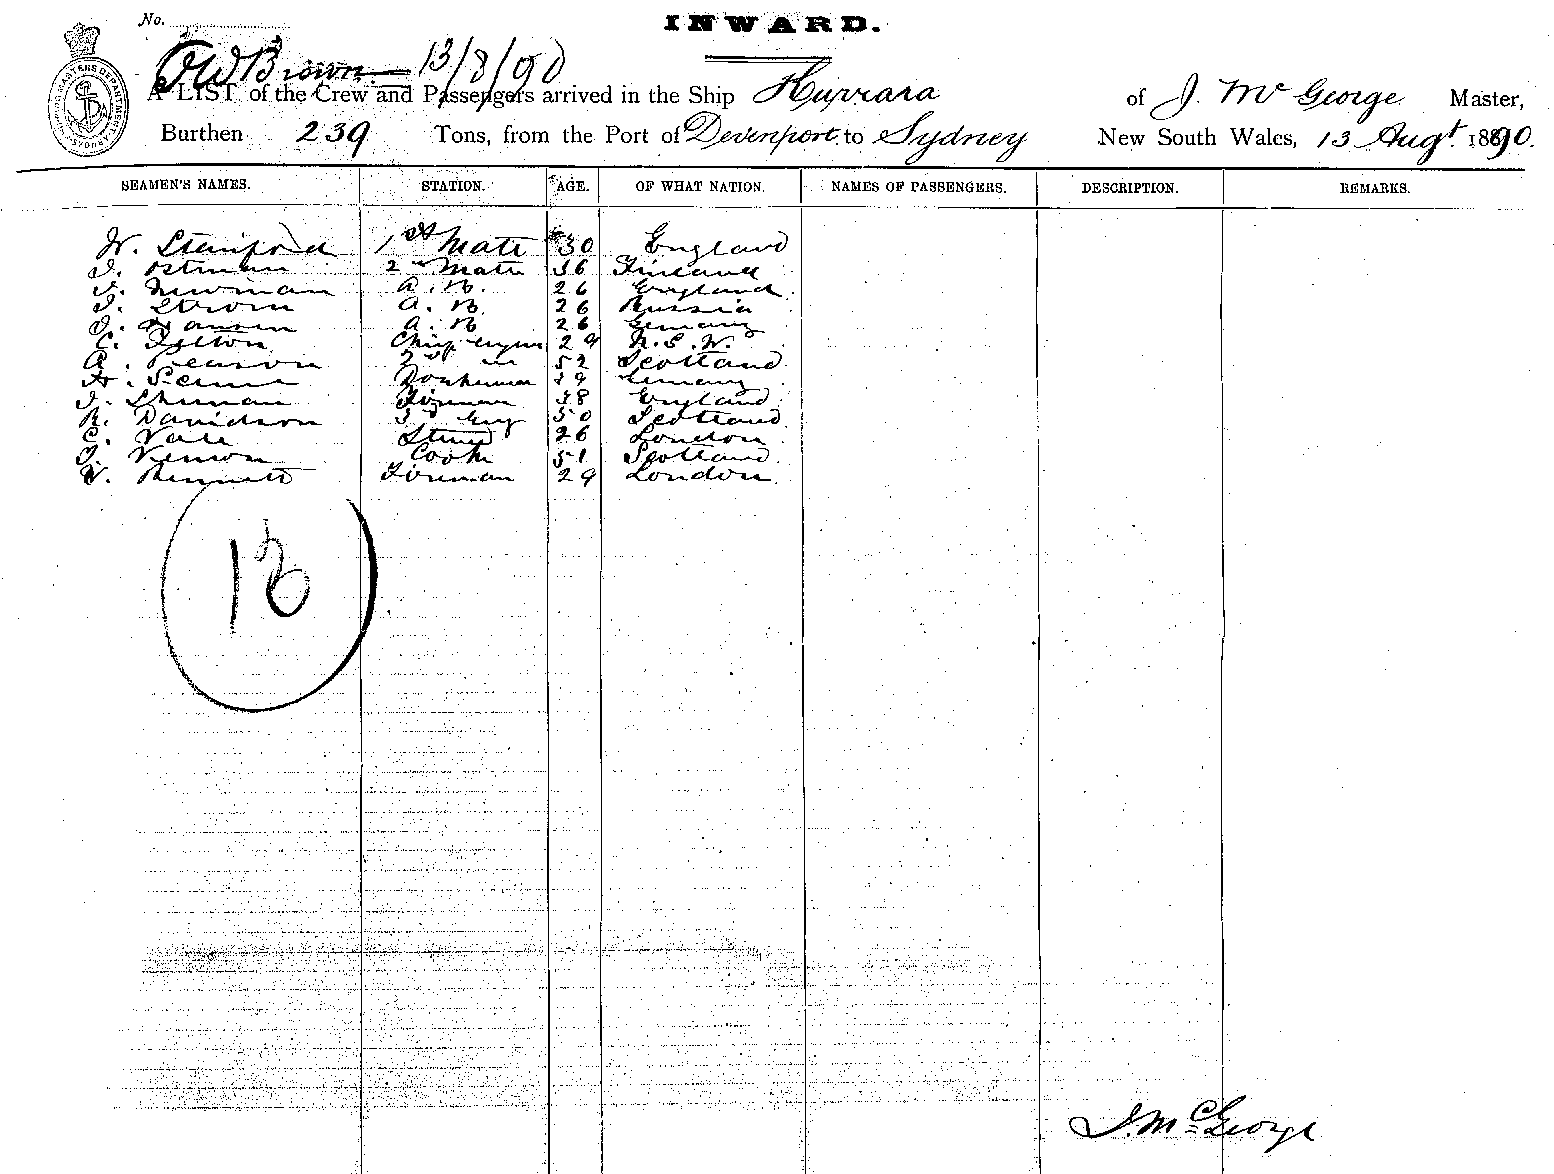 No.
INWARD.
13/8/90
A LIST of the Crew and Passengers arrived in the Ship Kurrara of J. McGeorge Master,
Burthen 239 Tons, from the Port of Devenport to Sydney New South Wales, 13 Augt. 1890.
SEAMEN'S NAMES. STATION. AGE. OF WHAT NATION. NAMES OF PASSENGERS. DESCRIPTION. REMARKS.
W. Stanford 1st Mate 30 England
Ostman 2nd Mate 36 Finland
Newman A.B. 26 England
Strom A.B. 26 Russia
Hansen A.B. 26 Germany
C. Felton Chief engineer 29 N.S.W.
A. Pearson 2nd 52 Scotland
Donkeyman 39 Germany
Fireman 38 England
R. Davidson 3rd Eng 50 Scotland
C. Vale Steward 26 London
Vernon Cook 51 Scotland
W. Bennett Fireman 29 London
13
J. McGeorge